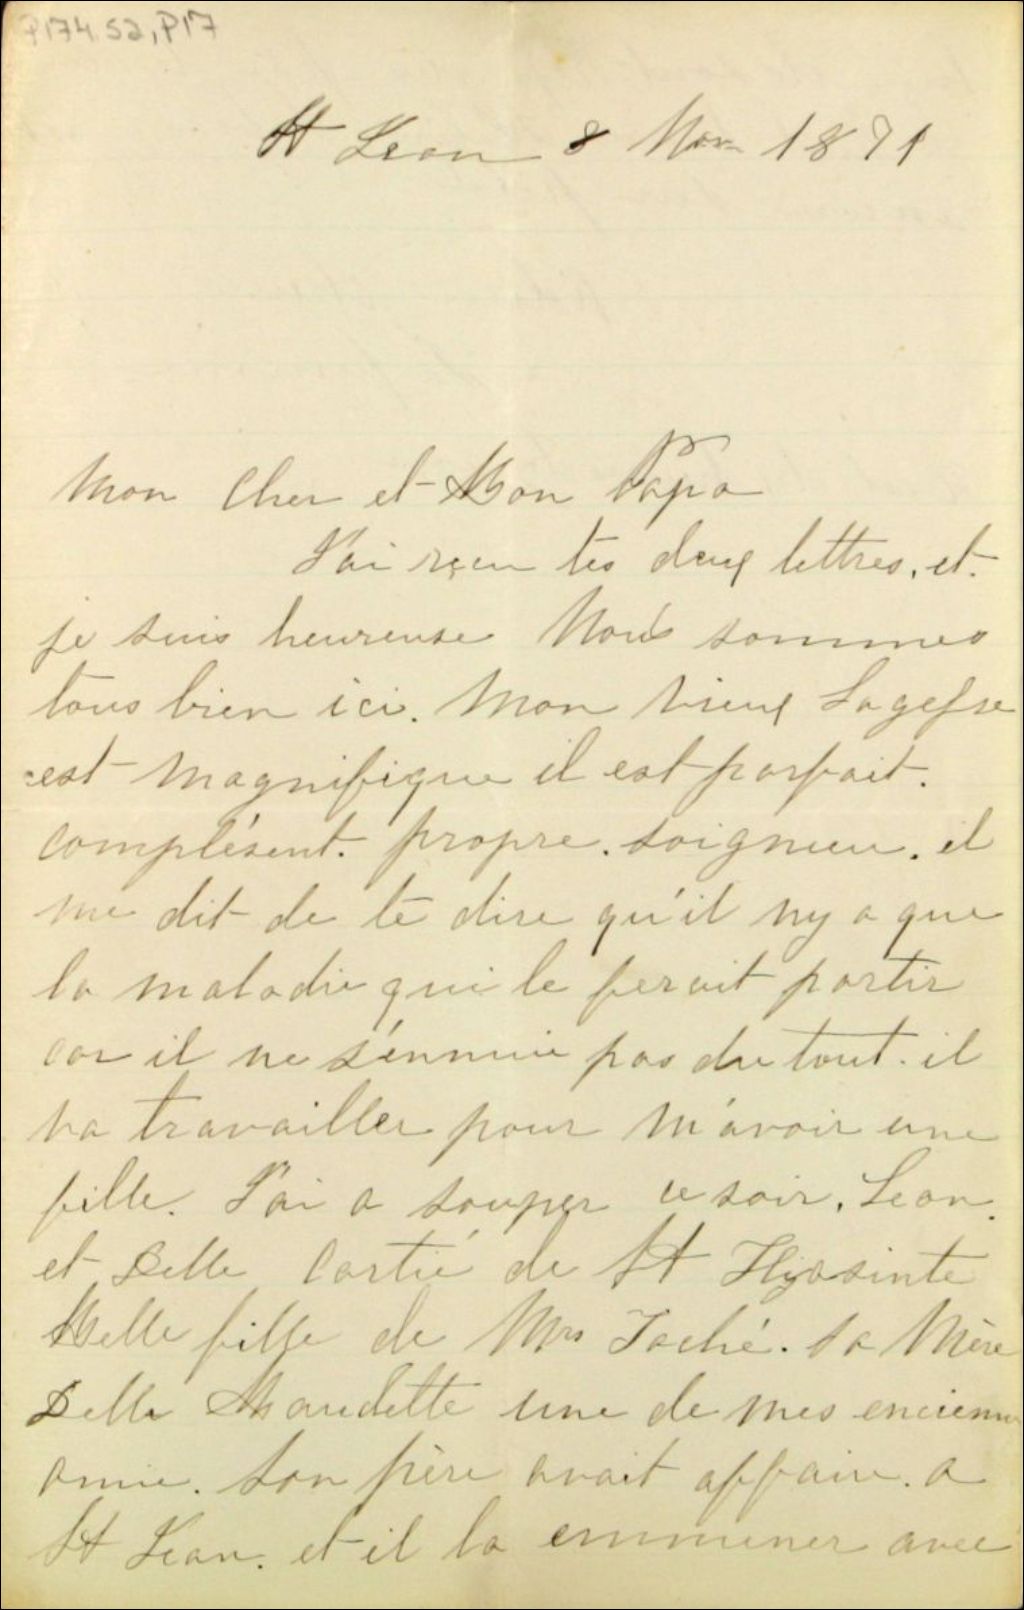 P174 S2, P17
St Jean 8 Nov 1891
Mon Cher et Bon Papa
J'ai reçeu tes deux lettres, et
je suis heureuse Nous sommes
tous bien ici. Mon vieux Lagesse
est magnifique il est parfait.
complésent. propre. soigneu. il
me dit de te dire qu'il ny a que
la maladie qui le ferait partir
car il ne s'ennuie pas du tout. il
va travailler pour m'avoir une
fille. J'ai a souper ce soir, Jean.
et Delle Cartié de St Hyasinte
Belle fille de Mrs Taché. Sa Mère
Delle Maudette une de mes encienne
amie. Son père avait affaire. a
St Jean. et il la emmener avec